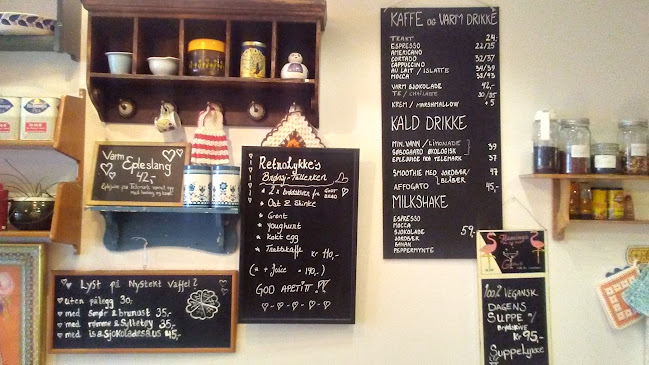 Varm ♡
Epleslang
42,-
RetroLykke's
Frokost-Tallerken
* 2 Brødskiver fra GODT BRØD
* Ost & Skinke
* Grønt
* Youghurt
* Kokt egg
* Traktekaffe kr 110,-
(m/ Juice = 140,-)
GOD APETITT !!
♥ Lyst på Nystekt Vaffel?
♥ uten pålegg 30,-
♥ med Smør & brunost 35,-
♥ med rømme & Syltetøy 35,-
♥ med is & sjokoladesaus 45,-
KAFFE OG VARM DRIKKE
TRAKT 24,-
ESPRESSO 22/25
AMERICANO
CORTADO 32/37
CAPPUCCINO
AU LAIT / ISLATTE 34/39
MOCCA 38/43
VARM SJOKOLADE 42,-
TE / CHAILATTE 30/35
KREM / MARSHMALLOW + 5
KALD DRIKKE
MIN. VANN / LIMONADE
ØKOLOGISK 39
EPLEJUICE FRA TELEMARK 37
SMOOTHIE MED JORDBÆR/
BLÅBÆR
AFFOGATO 45,-
MILKSHAKE
ESPRESSO
MOCCA
SJOKOLADE 59,-
JORDBÆR
BANAN
PEPPERMYNTE
100% VEGANSK
DAGENS
SUPPE m/
Brødskive
Kr 95,-
SuppeLykke